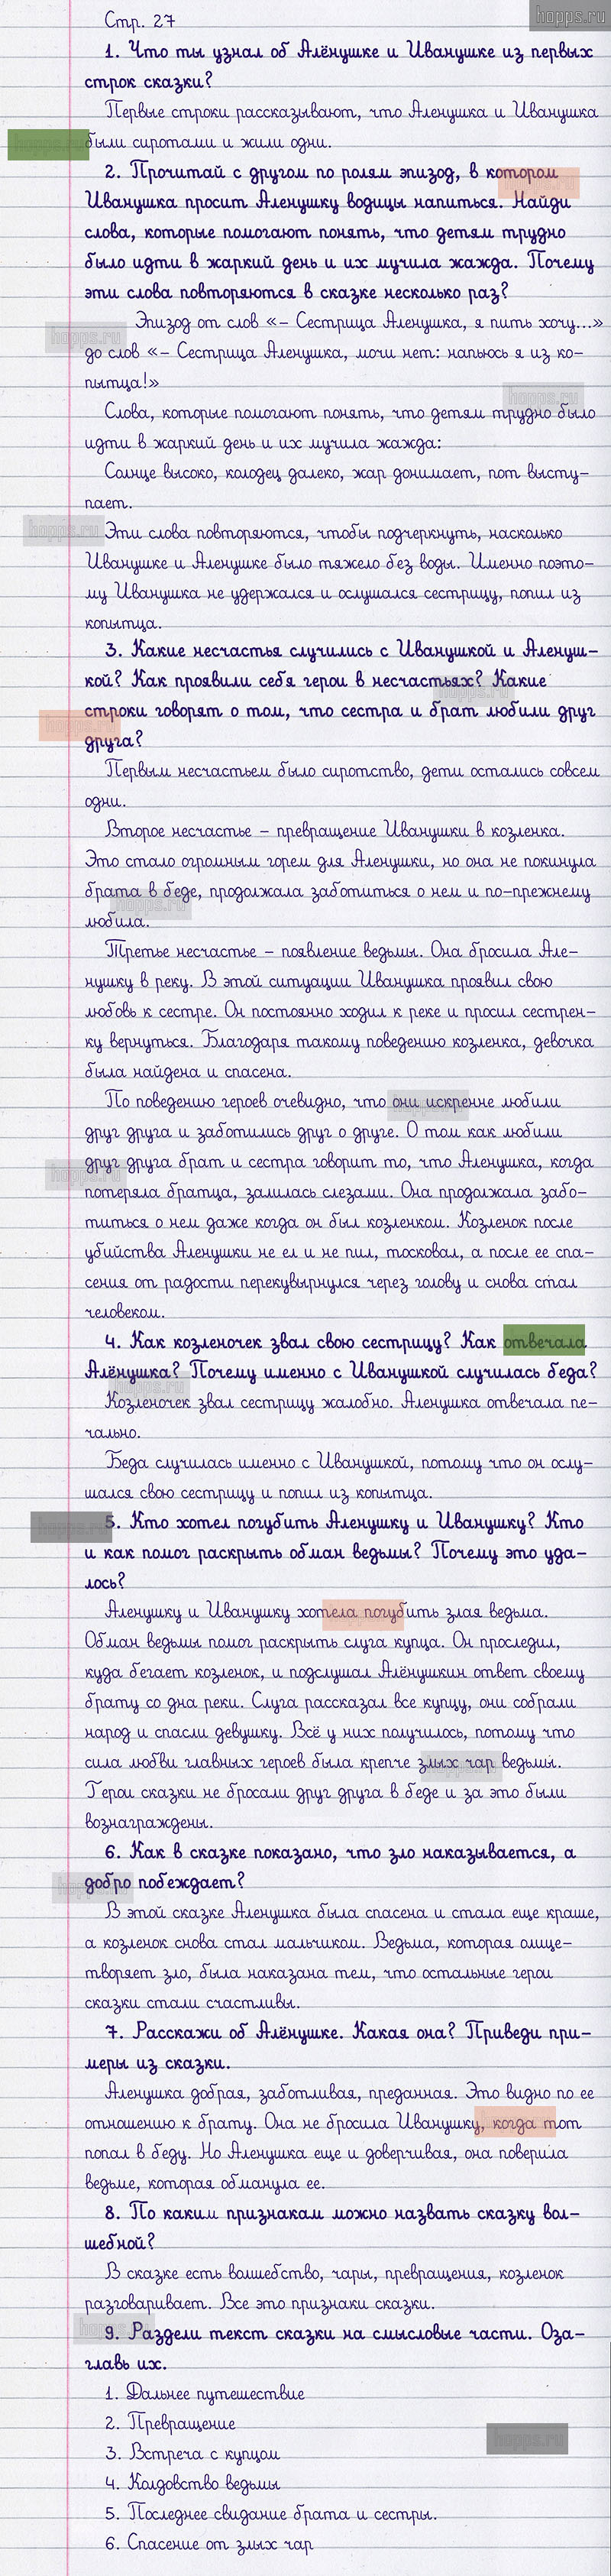 hopps.ru
Стр. 27
1. Что ты узнал об Алёнушке и Иванушке из первых
строк сказки?
Первые строки рассказывают, что Аленушка и Иванушка
были сиротами и жили одни.
2. Прочитай с другом по ролям эпизод, в котором
Иванушка просит Аленушку водицы напиться. Найди
слова, которые помогают понять, что детям трудно
было идти в жаркий день и их мучила жажда. Почему
эти слова повторяются в сказке несколько раз?
Эпизод от слов «– Сестрица Аленушка, я пить хочу...»
hopps.ru
до слов «– Сестрица Аленушка, мочи нет: напьюсь я из ко-
пытца!»
hopps.ru
Слова, которые помогают понять, что детям трудно было
идти в жаркий день и их мучила жажда:
Солнце высоко, колодец далеко, жар донимает, пот высту-
пает.
hopps.ru
Эти слова повторяются, чтобы подчеркнуть, насколько
Иванушке и Аленушке было тяжело без воды. Именно поэто-
му Иванушка не удержался и ослушался сестрицу, попил из
копытца.
3. Какие несчастья случились с Иванушкой и Аленуш-
кой? Как проявили себя герои в несчастьях? Какие
строки говорят о том, что сестра и брат любили друг
друга?
Первым несчастьем было сиротство, дети остались совсем
одни.
Второе несчастье – превращение Иванушки в козленка.
Это стало огромным горем для Аленушки, но она не покинула
брата в беде, продолжала заботиться о нем и по-прежнему
любила.
Третье несчастье – появление ведьмы. Она бросила Але-
нушку в реку. В этой ситуации Иванушка проявил свою
любовь к сестре. Он постоянно ходил к реке и просил сестрен-
ку вернуться. Благодаря такому поведению козленка, девочка
была найдена и спасена.
По поведению героев очевидно, что они искренне любили
друг друга и заботились друг о друге. О том как любили
друг друга брат и сестра говорит то, что Аленушка, когда
потеряла братца, залилась слезами. Она продолжала забо-
титься о нем даже когда он был козленком. Козленок после
убийства Аленушки не ел и не пил, тосковал, а после ее спа-
сения от радости перекувырнулся через голову и снова стал
человеком.
4. Как козленочек звал свою сестрицу? Как отвечала
Алёнушка? Почему именно с Иванушкой случилась беда?
Козленочек звал сестрицу жалобно. Аленушка отвечала пе-
чально.
Беда случилась именно с Иванушкой, потому что он ослу-
шался свою сестрицу и попил из копытца.
5. Кто хотел погубить Аленушку и Иванушку? Кто
и как помог раскрыть обман ведьмы? Почему это уда-
лось?
Аленушку и Иванушку хотела погубить злая ведьма.
Обман ведьмы помог раскрыть слуга купца. Он проследил,
куда бегает козленок, и подслушал Алёнушкин ответ своему
брату со дна реки. Слуга рассказал все купцу, они собрали
народ и спасли девушку. Всё у них получилось, потому что
сила любви главных героев была крепче злых чар ведьмы.
Герои сказки не бросали друг друга в беде и за это были
вознаграждены.
6. Как в сказке показано, что зло наказывается, а
добро побеждает?
В этой сказке Аленушка была спасена и стала еще краше,
а козленок снова стал мальчиком. Ведьма, которая олице-
творяет зло, была наказана тем, что остальные герои
сказки стали счастливы.
7. Расскажи об Алёнушке. Какая она? Приведи при-
меры из сказки.
Аленушка добрая, заботливая, преданная. Это видно по ее
отношению к брату. Она не бросила Иванушку, когда тот
попал в беду. Но Аленушка еще и доверчивая, она поверила
ведьме, которая обманула ее.
8. По каким признакам можно назвать сказку вол-
шебной?
В сказке есть волшебство, чары, превращения, козленок
разговаривает. Все это признаки сказки.
hopps.ru
9. Раздели текст сказки на смысловые части. Оза-
главь их.
1. Дальнее путешествие
2. Превращение
hopps.ru
3. Встреча с купцом
4. Колдовство ведьмы
5. Последнее свидание брата и сестры.
6. Спасение от злых чар